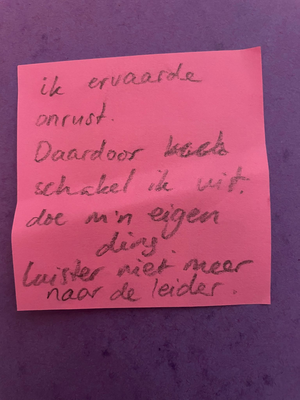 ik ervaarde
onrust.
Daardoor
schakel ik uit.
doe m'n eigen
ding.
Luister niet meer
naar de leider.